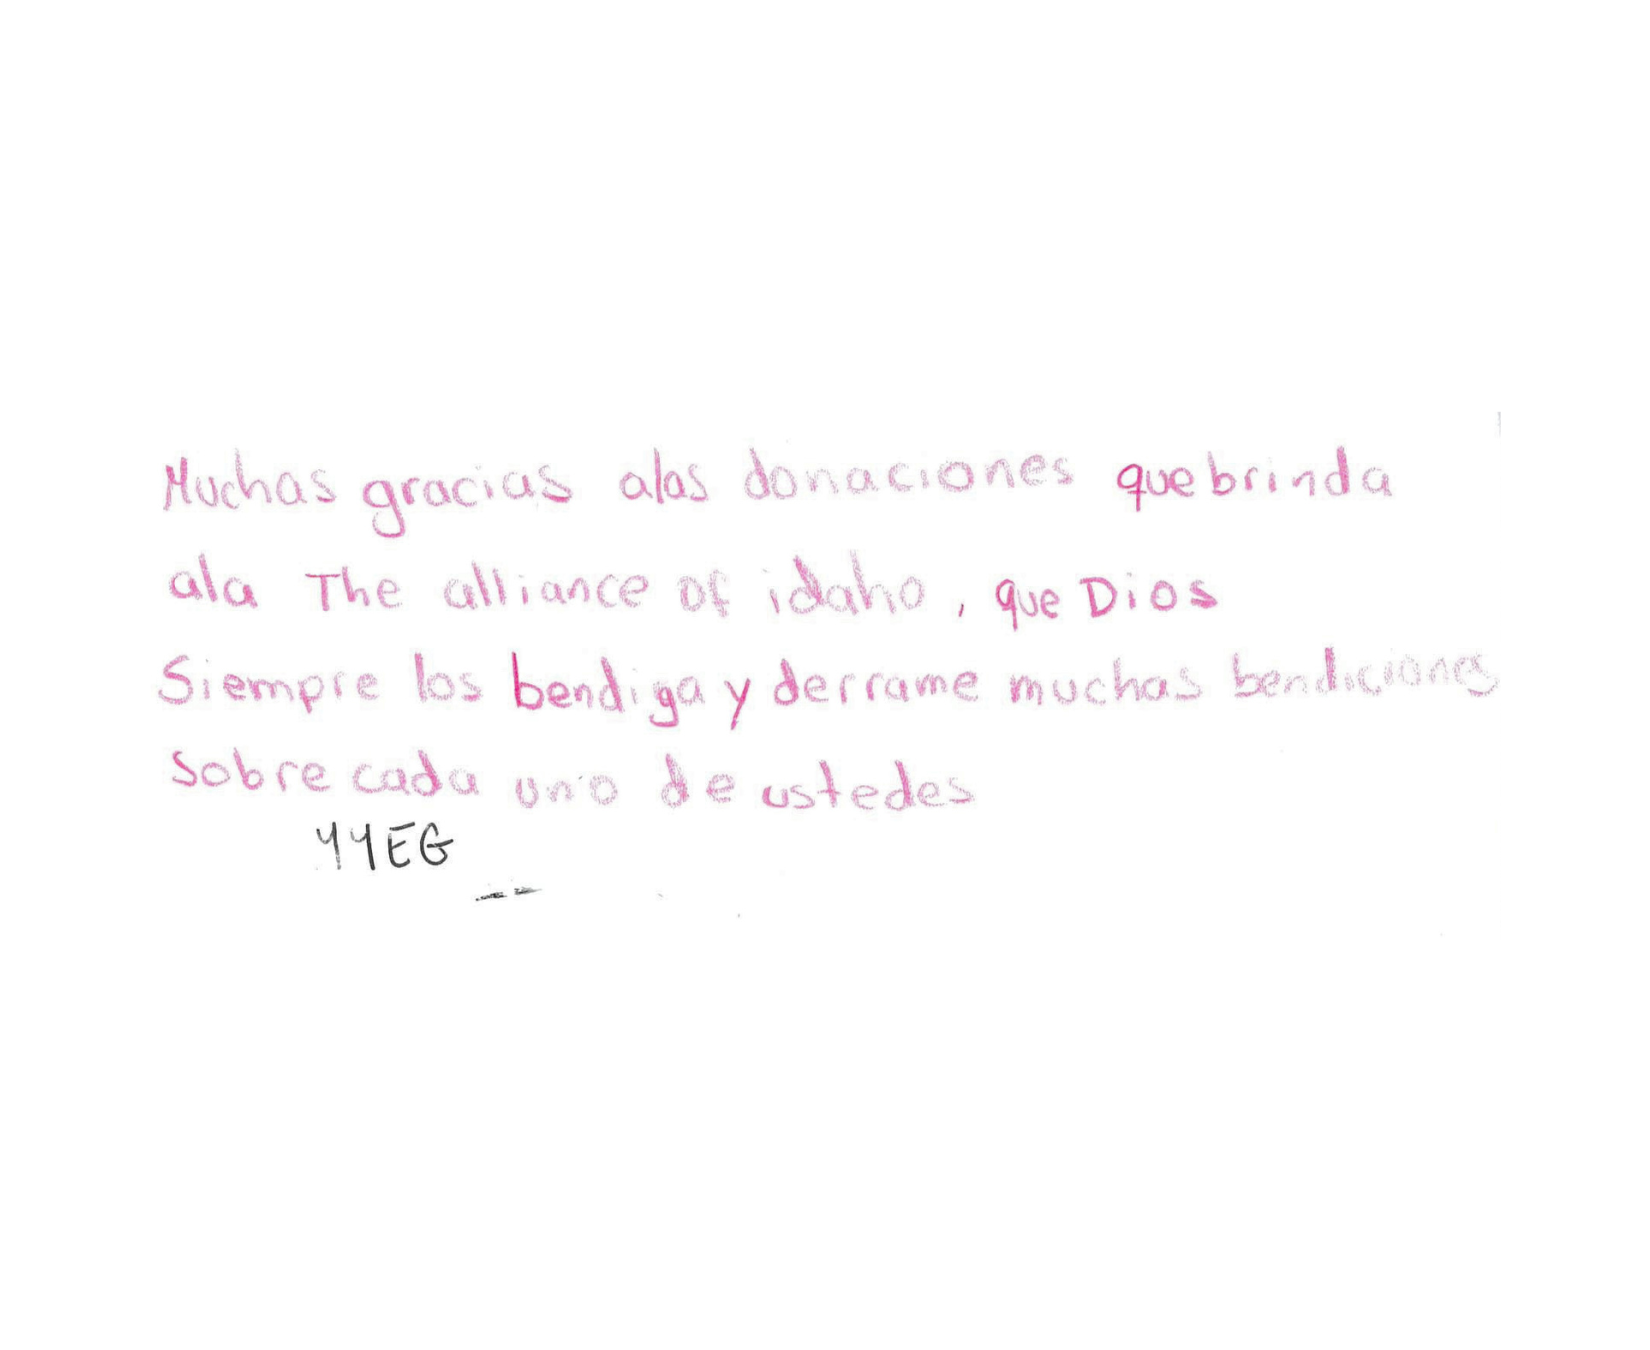 Muchas gracias alas donaciones que brinda
ala The alliance of idaho, que Dios
Siempre los bendiga y derrame muchas bendiciones
Sobre cada uno de ustedes
YYEG